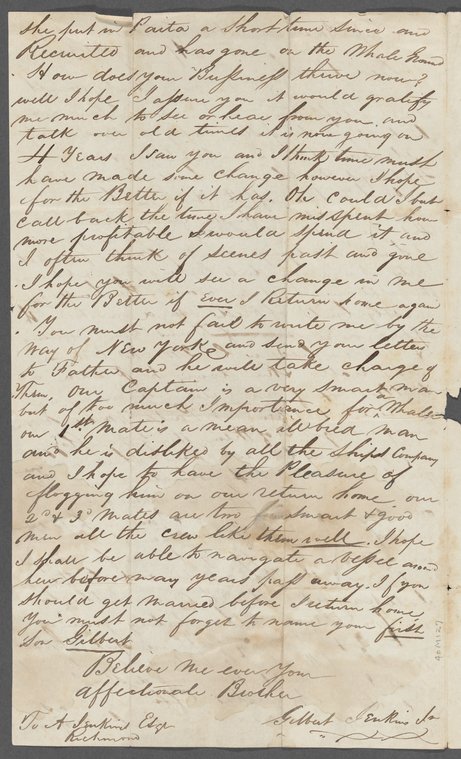 she put in Paita a Short time since and
Recruited and has gone on the Whale Ground
How does your Bussiness thrive now?
well I hope I assure you it would gratify
me much to see or hear from you and
talk over old times it is now going on
4 Years I saw you and I think time must
have made some change however I hope
for the Better if it has. Oh could I but
call back the time I have misspent how
more profitable I would spend it and
I often think of scenes past and gone
I hope you will see a change in me
for the Better if Ever I Return home again
You must not fail to write me by the
way of New York and send your letter
to Father and he will take charge of
Them. Our Captain is a very smart man
but of too much Importance for a Whale-
our 1st Mate is a mean ill bred man
and he is disliked by all the Ships Company
and I hope to have the Pleasure of
flogging him on our return home our
2d & 3d Mates are two smart & good
men all the crew like them well. I hope
I shall be able to navigate a vessel
here before many years pass away. If you
should get married before I return home
You must not forget to name your first
Son Gilbert
Believe me ever Your
affectionate Brother
Gilbert Jenkins Jr
To A Jenkins Esqr
Richmond